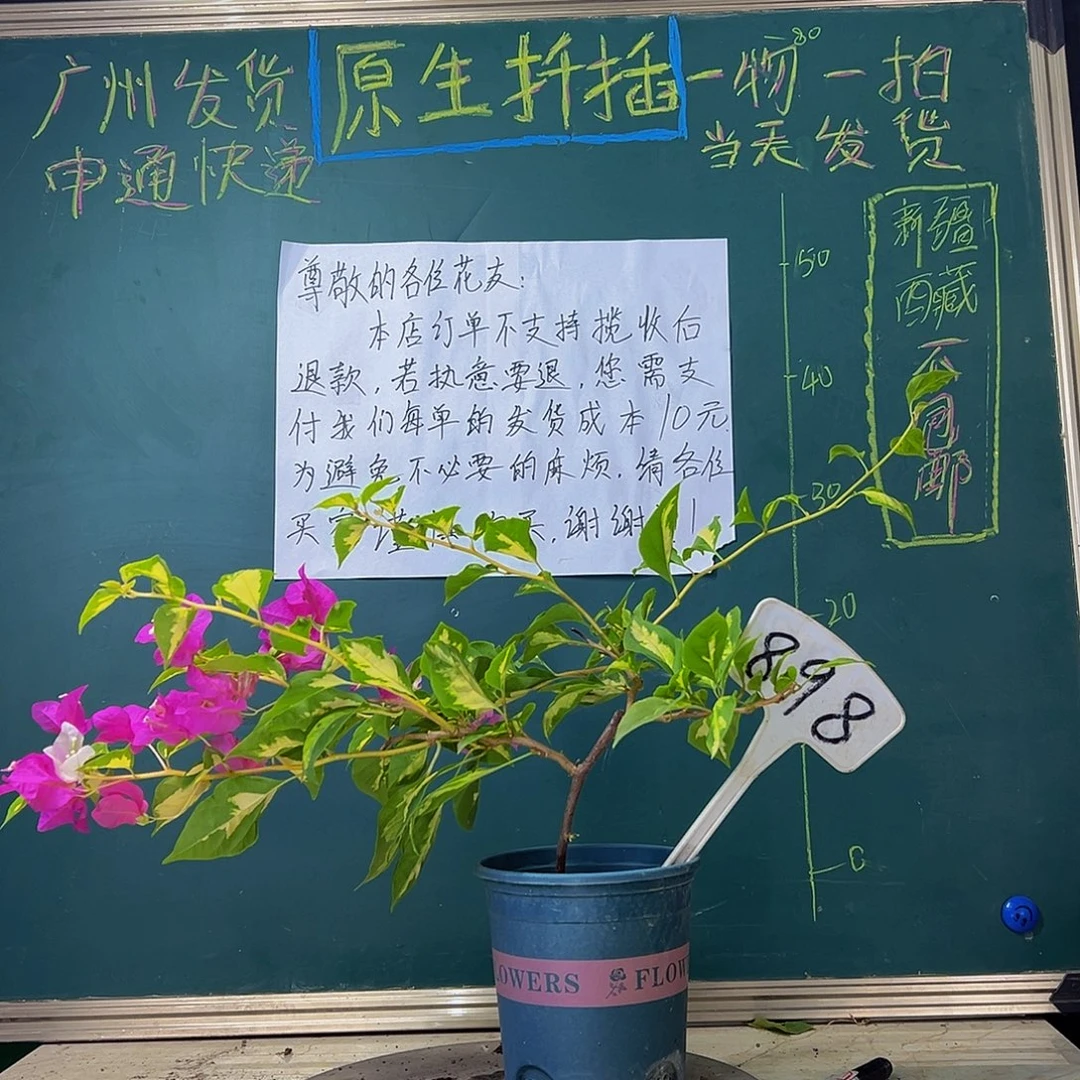 广州发货
申通快递
原生扦插
一物一拍
80
当天发货
新疆
西藏
不
同
邮
150
40
30
20
0
尊敬的各位花友：
本店订单不支持揽收后
退款，若执意要退，您需支
付我们每单的发货成本10元
为避免不必要的麻烦，请各位
买 买，谢谢！
898
OWERS FLOW